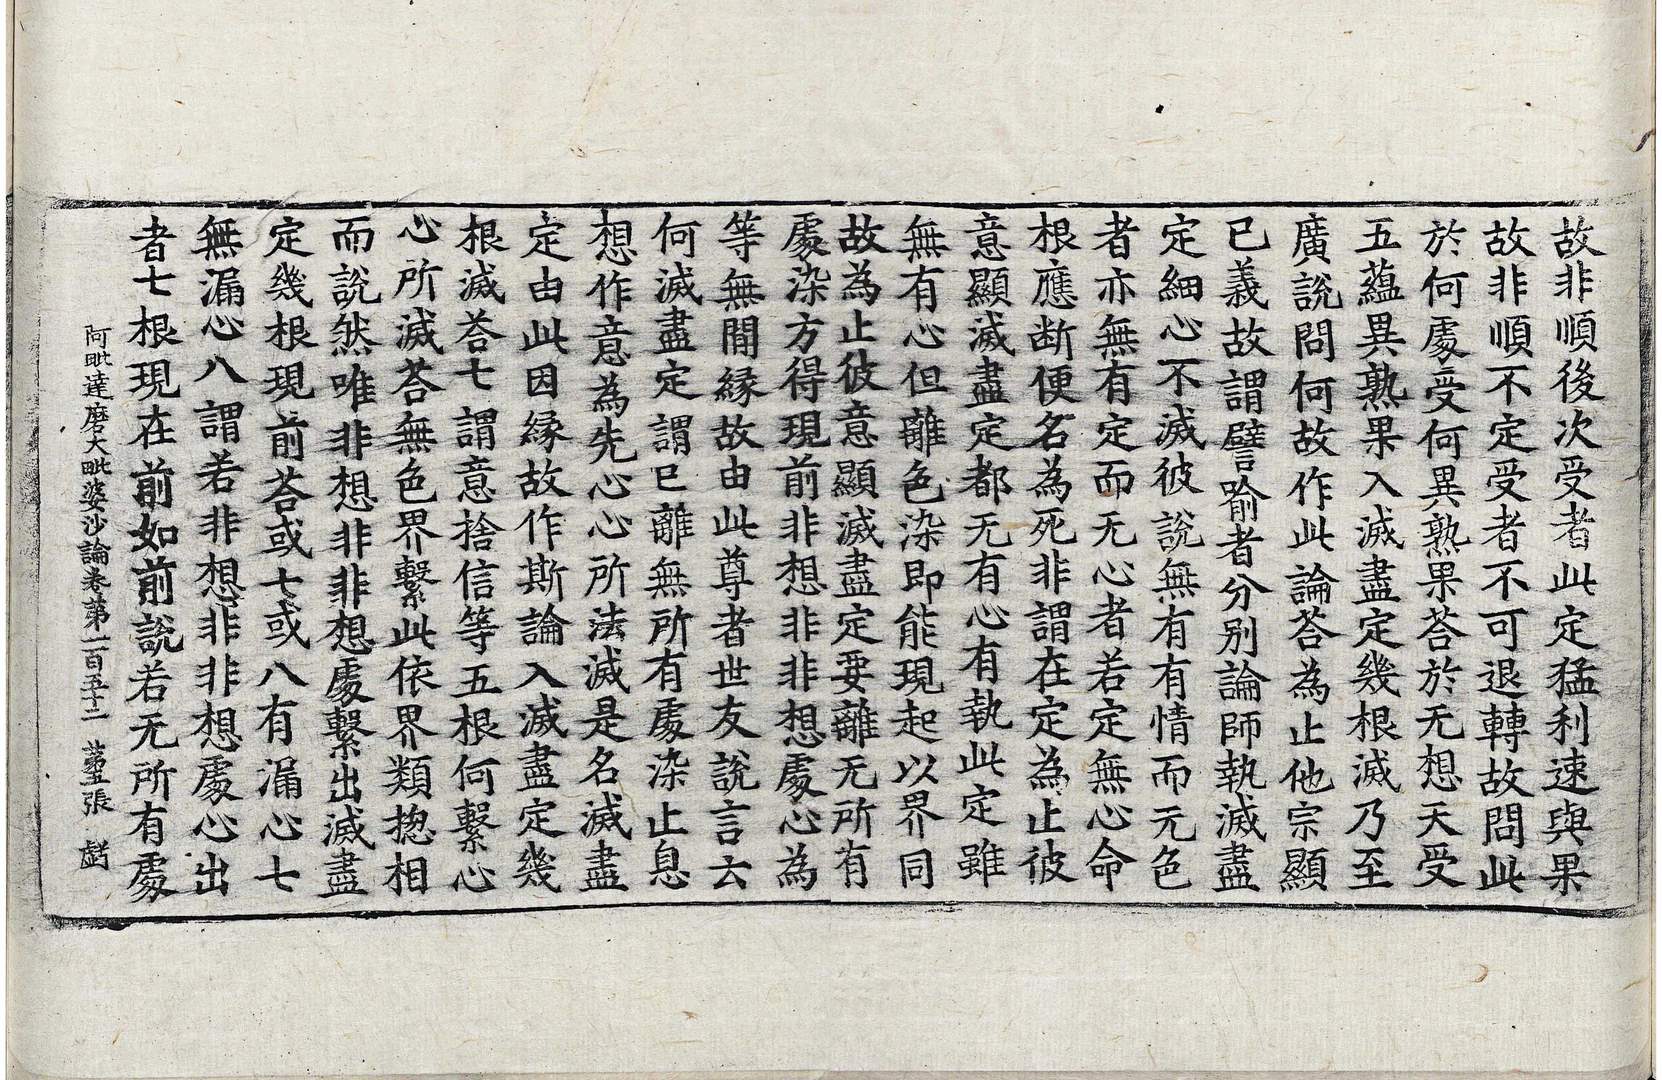 故非順後次受者此定猛利速與果
故非順不定受者不可退轉故問此
於何處受何異熟果荅於无想天受
五蘊異熟果入滅盡定幾根滅乃至
廣說問何故作此論荅為止他宗顯
已義故謂譬喻者分別論師執滅盡
定細心不滅彼說無有有情而无色
者亦無有定而无心者若定無心命
根應断便名為死非謂在定為止彼
意顯滅盡定都无有心有執此定雖
無有心但離色染即能現起以界同
故為止彼意顯滅盡定要離无所有
處染方得現前非想非非想處心為
等無間縁故由此尊者世友說言云
何滅盡定謂已離無所有處染止息
想作意為先心心所法滅是名滅盡
定由此因縁故作斯論入滅盡定幾
根滅荅七謂意捨信等五根何繫心
心所滅荅無色界繫此依界類揔相
而說然唯非想非非想處繫出滅盡
定幾根現前荅或七或八有漏心七
無漏心八謂若非想非非想處心出
者七根現在前如前說若无所有處
阿毗達磨大毗婆沙論卷第一百五十二 第五張 戱